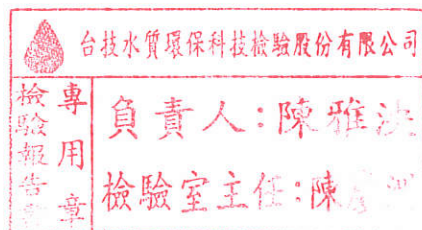 台技水質環保科技檢驗股份有限公司
專用章
檢驗報告
負責人:陳雅
檢驗室主任:陳